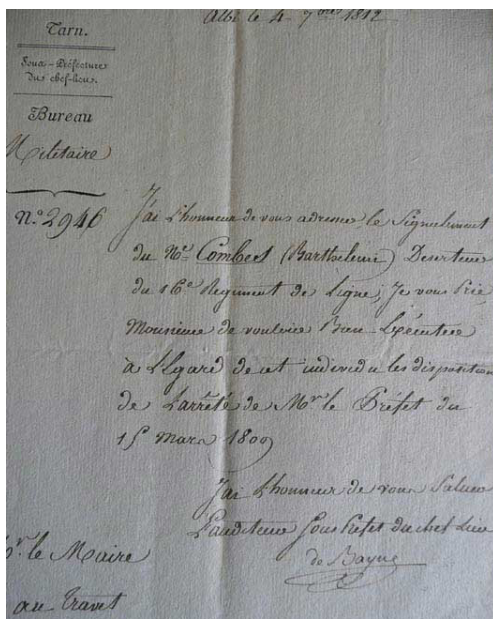 Albi le 4 7bre 1812
Tarn.
Sous-Préfecture
du chef-lieu.
Bureau
Militaire
N.° 2946
J'ai l'honneur de vous adresser le Signalement
du Né Combes (Barthelemi) Deserteur
du 16e Regiment de Ligne, Je vous Prie
Monsieur de vouloir Bien Exécuter
à l'Egard de cet individu les disposition
de l'arrêté de Mr le Préfet du
15 Mars 1809
J'ai l'honneur de vous Saluer
L'auditeur Sous Préfet du chef Lieu
de Bayne
Mr. le Maire
au Travet